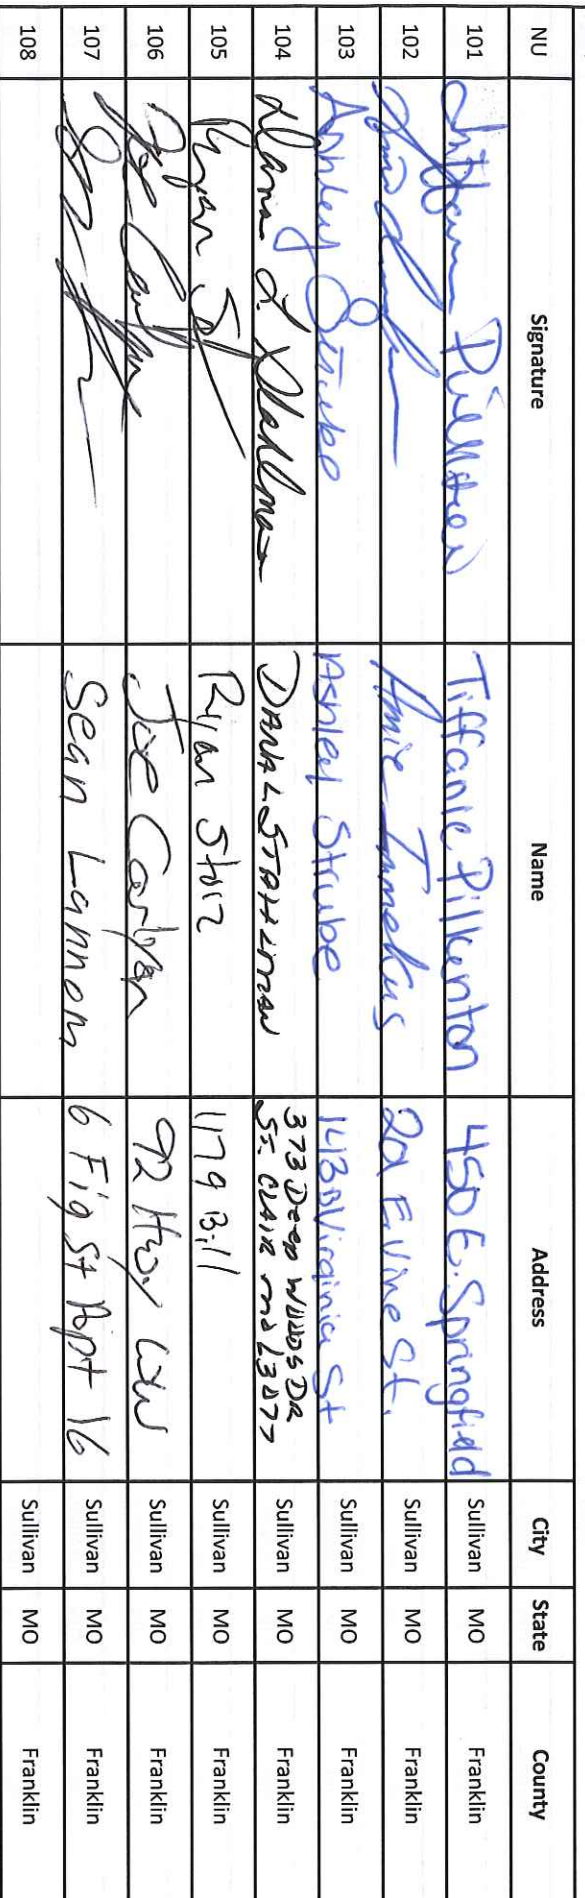 NU Signature Name Address City State County
101 Tiffanie Pilkenton 450 E. Springfield Sullivan MO Franklin
102 Amie Immekus 20 E Vine St. Sullivan MO Franklin
103 Ashley Strube Ashley Strube Virginia St Sullivan MO Franklin
104 Dana L Stahlman DANA L STAHLMAN 373 Deep Woods DR Sullivan MO Franklin
ST. CLAIR mo 63077
105 Ryan Ryan 1179 Bill Sullivan MO Franklin
106 Joe Joe 92 Hwy Sullivan MO Franklin
107 Sean Lannom 6 Fig St Apt 16 Sullivan MO Franklin
108 Sullivan MO Franklin